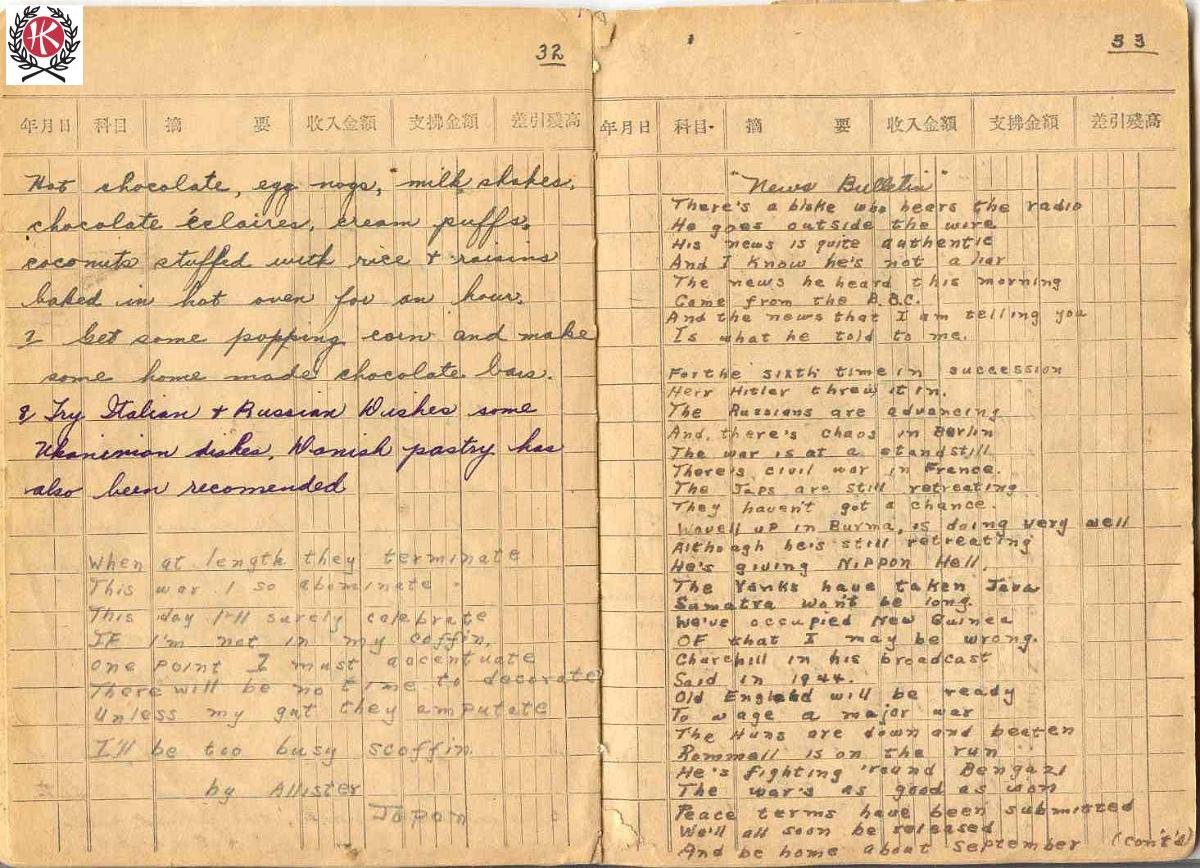 HK
32
年月日 科目 摘 要 收入金額 支拂金額 差引殘高
Hot chocolate, egg nogs, milk shakes,
chocolate éclaires, cream puffs,
coconuts stuffed with rice + raisins
baked in hot oven for an hour.
Get some popping corn and make
some home made chocolate bars.
Try Italian + Russian Dishes some
dishes, Danish pastry has
also been recomended
When at length they terminate
This war I so abominate
This day I'll surely celebrate
IF I'm not in my coffin,
One point I must accentuate
There will be no time to decorate
Unless my gut they amputate
I'll be too busy scoffin.
by Allister
Japan
33
年月日 科目 摘 要 收入金額 支拂金額 差引殘高
"News Bulletin"
There's a bloke who hears the radio
He goes outside the wire
His news is quite authentic
And I know he's not a liar
The news he heard this morning
Came from the B.B.C.
And the news that I am telling you
Is what he told to me.
For the sixth time in succession
Herr Hitler threw it in.
The Russians are advancing
And, there's chaos in Berlin
The war is at a standstill
There's civil war in France.
The Japs are still retreating
They haven't got a chance.
Wavell up in Burma, is doing very well
Although he's still retreating
He's giving Nippon Hell.
The Yanks have taken Java
Sumatra won't be long.
We've occupied New Guinea
OF that I may be wrong.
Churchill in his broadcast
Said in 1944.
Old England will be ready
To wage a major war
The Huns are down and beaten
Rommell is on the run
He's fighting 'round Bengazi
The war's as good as won
Peace terms have been submitted
We'll all soon be released
And be home about September (cont'd)